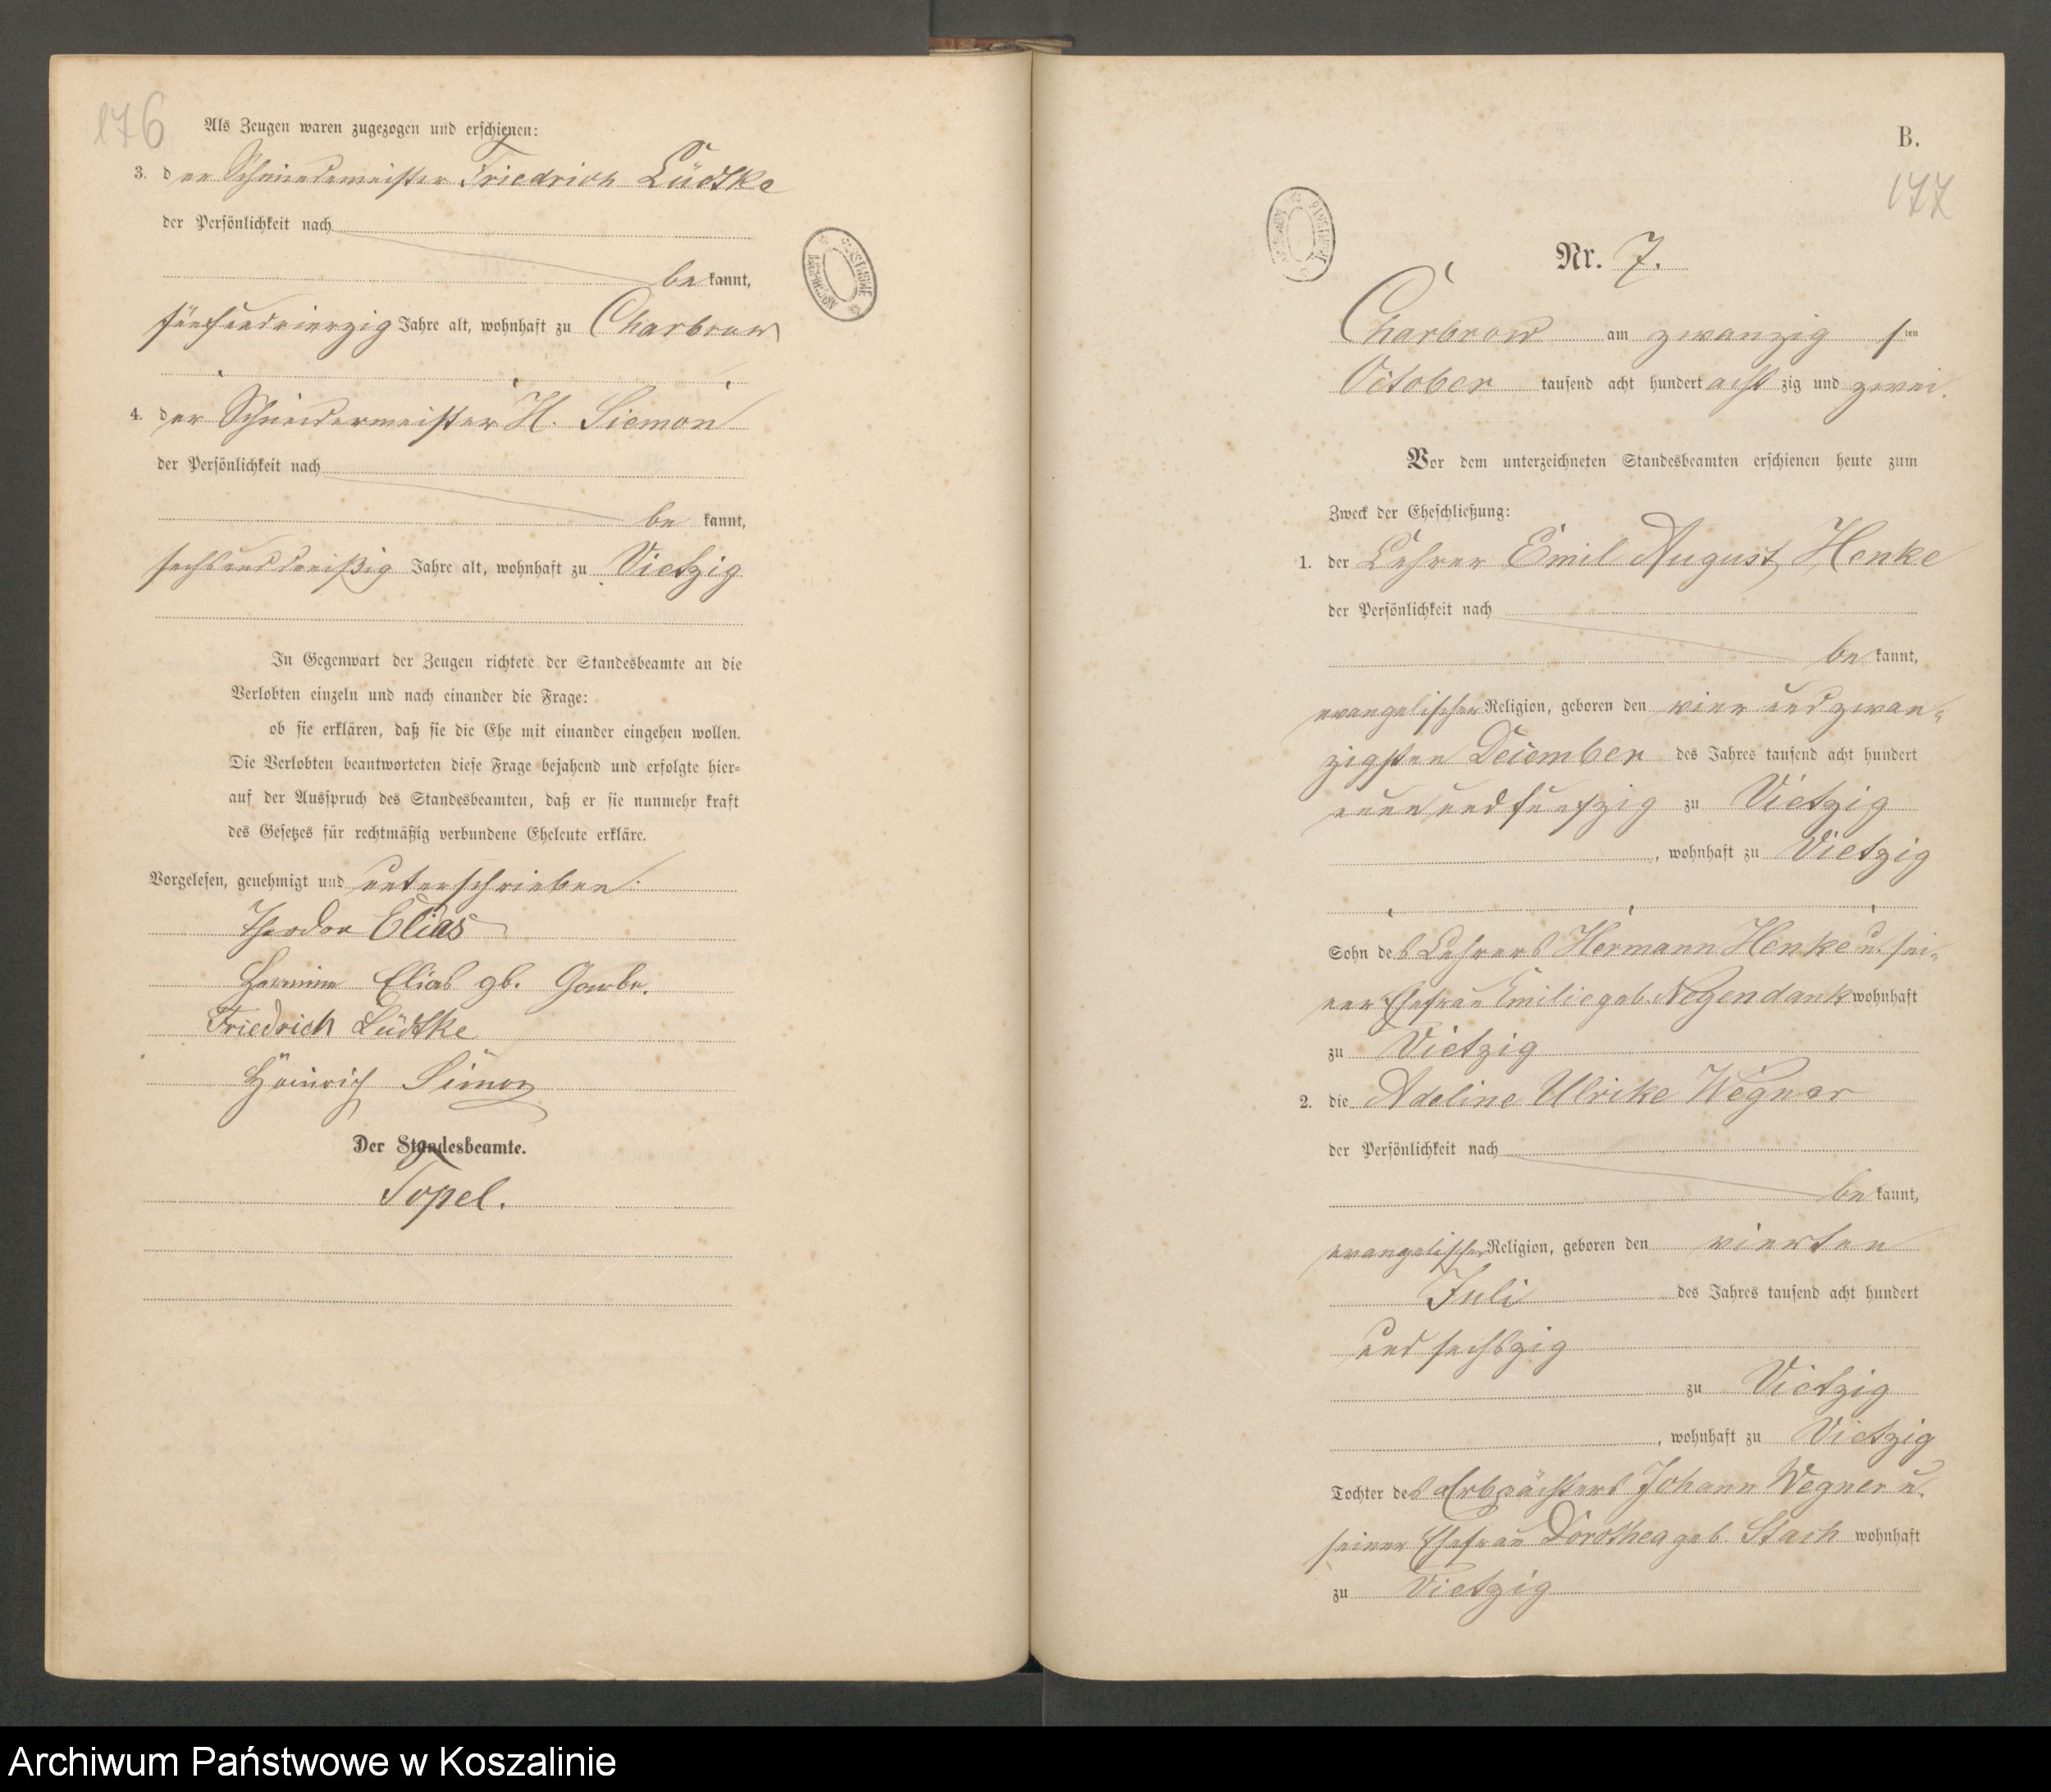 176
Als Zeugen waren zugezogen und erschienen:
3. der Schmiedemeister Friedrich Lüdtke
der Persönlichkeit nach
be kannt,
fünfundvierzig Jahre alt, wohnhaft zu Charbrow
4. der Schneidermeister H. Siemon
der Persönlichkeit nach
be kannt,
sechsunddreißig Jahre alt, wohnhaft zu Vietzig
In Gegenwart der Zeugen richtete der Standesbeamte an die
Verlobten einzeln und nach einander die Frage:
ob sie erklären, daß sie die Ehe mit einander eingehen wollen.
Die Verlobten beantworteten diese Frage bejahend und erfolgte hier-
auf der Ausspruch des Standesbeamten, daß er sie nunmehr kraft
des Gesetzes für rechtmäßig verbundene Eheleute erkläre.
Vorgelesen, genehmigt und unterschrieben.
Theodor Elias
Hermine Elias gb. Garbe.
Friedrich Lüdtke
Heinrich Simon
Der Standesbeamte.
Topel.
B.
177
Nr. 7.
Charbrow am zwanzig sten
October tausend acht hundert acht zig und zwei.
Vor dem unterzeichneten Standesbeamten erschienen heute zum
Zweck der Eheschließung:
1. der Lehrer Emil August Henke
der Persönlichkeit nach
be kannt,
evangelischer Religion, geboren den vier und zwan-
zigsten December des Jahres tausend acht hundert
neun und fünfzig zu Vietzig
, wohnhaft zu Vietzig
Sohn des Lehrers Hermann Henke u. sei-
ner Ehefrau Emilie geb. Negendank wohnhaft
zu Vietzig
2. die Adeline Ulrike Wegner
der Persönlichkeit nach
be kannt,
evangelischer Religion, geboren den vierten
Juli des Jahres tausend acht hundert
und sechszig
zu Vietzig
, wohnhaft zu Vietzig
Tochter des Erbpächters Johann Wegner u.
seiner Ehefrau Dorothea geb. Stach wohnhaft
zu Vietzig
Archiwum Państwowe w Koszalinie